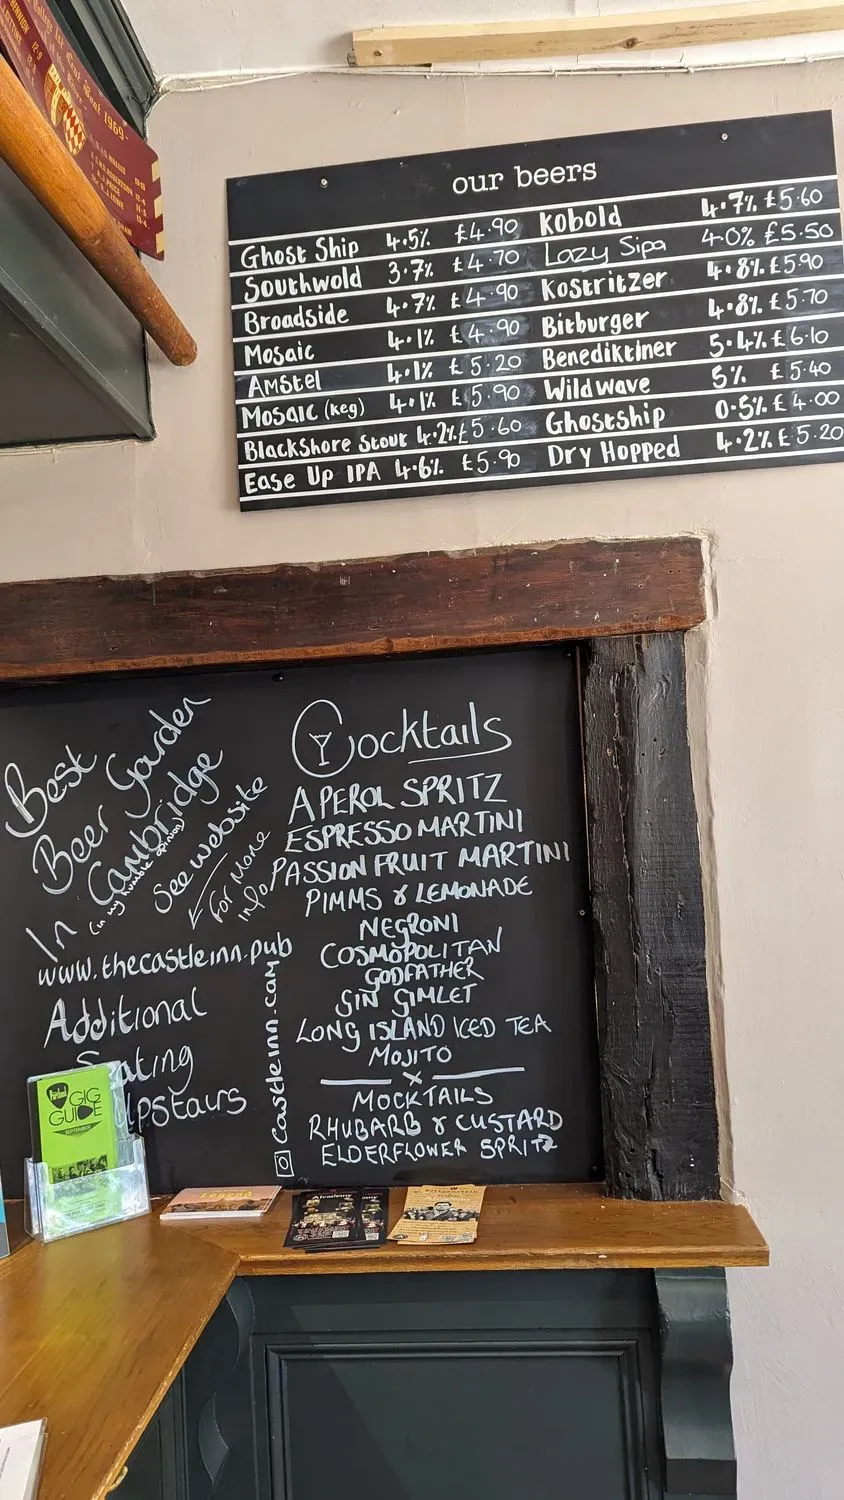 our beers
Ghost Ship 4.5% £4.90
Southwold 3.7% £4.70
Broadside 4.7% £4.90
Mosaic 4.1% £4.90
Amstel 4.1% £5.20
Mosaic (keg) 4.1% £5.90
Blackshore Stout 4.2% £5.60
Ease Up IPA 4.6% £5.90
Kobold 4.7% £5.60
Lazy Sipa 4.0% £5.50
Kostritzer 4.8% £5.90
Bitburger 4.8% £5.70
Benediktiner 5.4% £6.10
Wildwave 5% £5.40
Ghostship 0.5% £4.00
Dry Hopped 4.2% £5.20
Best
Beer Garden
In Cambridge
(in my humble opinion)
See website
For More
Info
www.thecastleinn.pub
Additional
Seating
Upstairs
Castleinn.cam
Cocktails
APEROL SPRITZ
ESPRESSO MARTINI
PASSION FRUIT MARTINI
PIMMS & LEMONADE
NEGRONI
COSMOPOLITAN
GODFATHER
GIN GIMLET
LONG ISLAND ICED TEA
MOJITO
x
MOCKTAILS
RHUBARB & CUSTARD
ELDERFLOWER SPRITZ
GIG
GUIDE
SEPTEMBER
Legend